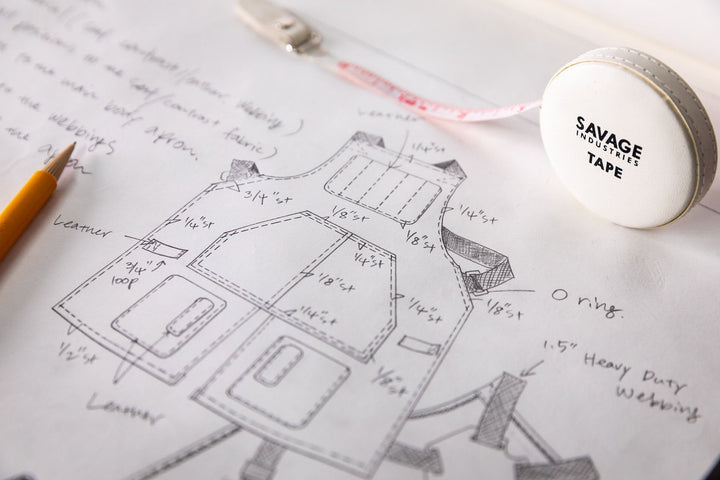 contrast/leather webbing)
to our main body apron.
contrast fabric)
to the webbings
the apron
SAVAGE
INDUSTRIES
TAPE
Leather
1/4"st
3/4"st
1/8"st
1/8"st
1/4"st
1/4"st
Leather
3/4"
loop
1/4"st
1/8"st
1/4"st
1/4"st
1/8"st
O ring.
1/2"st
1/8"st
Leather
1.5" Heavy Duty
Webbing